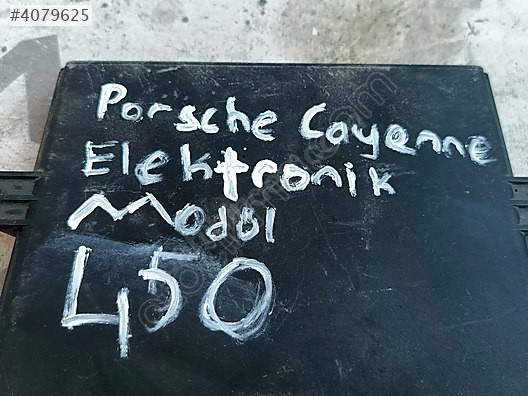 #4079625
Porsche Cayenne
Elektronik
Modül
450